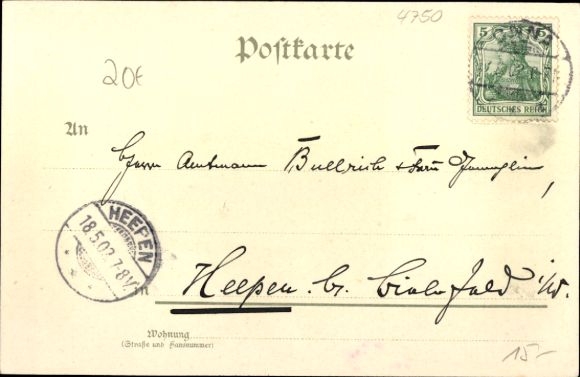 4750
Postkarte
20€
5 5
DEUTSCHES REICH
An
Herrn Amtmann Bullrich + Frau
HEEPEN
18.5.03.7-8V.
in Heepen. br. Bielefeld i/W.
Wohnung
(Straße und Hausnummer)
15.-